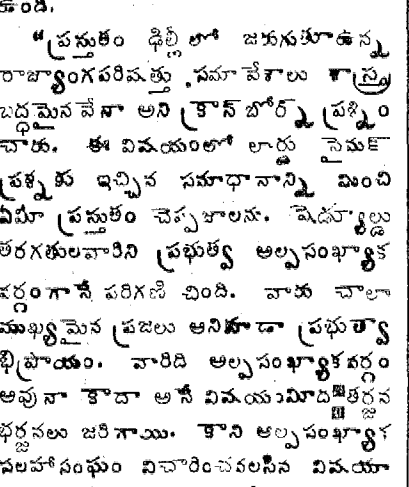 ఉంది.
"ప్రస్తుతం ఢిల్లీ లో జరుగుతూఉన్న
రాజ్యాంగపరిషత్తు సమావేశాలు శాస్త్ర
బద్ధమైనవేనా అని క్రాన్‌బోర్న్ ప్రశ్నిం
చారు. ఈ విషయంలో లార్డు సైమన్
ప్రశ్నకు ఇచ్చిన సమాధానాన్ని మించి
ఏమీ ప్రస్తుతం చెప్పజాలను. షెడ్యూల్డు
తరగతులవారిని ప్రభుత్వ అల్పసంఖ్యాక
వర్గంగానే పరిగణించింది. వారు చాలా
ముఖ్యమైన ప్రజలు అనికూడా ప్రభుత్వా
భిప్రాయం. వారిది అల్పసంఖ్యాకవర్గం
అవునా కాదా అనే విషయంమీద తర్జన
భర్జనలు జరిగాయి. కాని అల్పసంఖ్యాక
సలహాసంఘం విచారించవలసిన విషయా